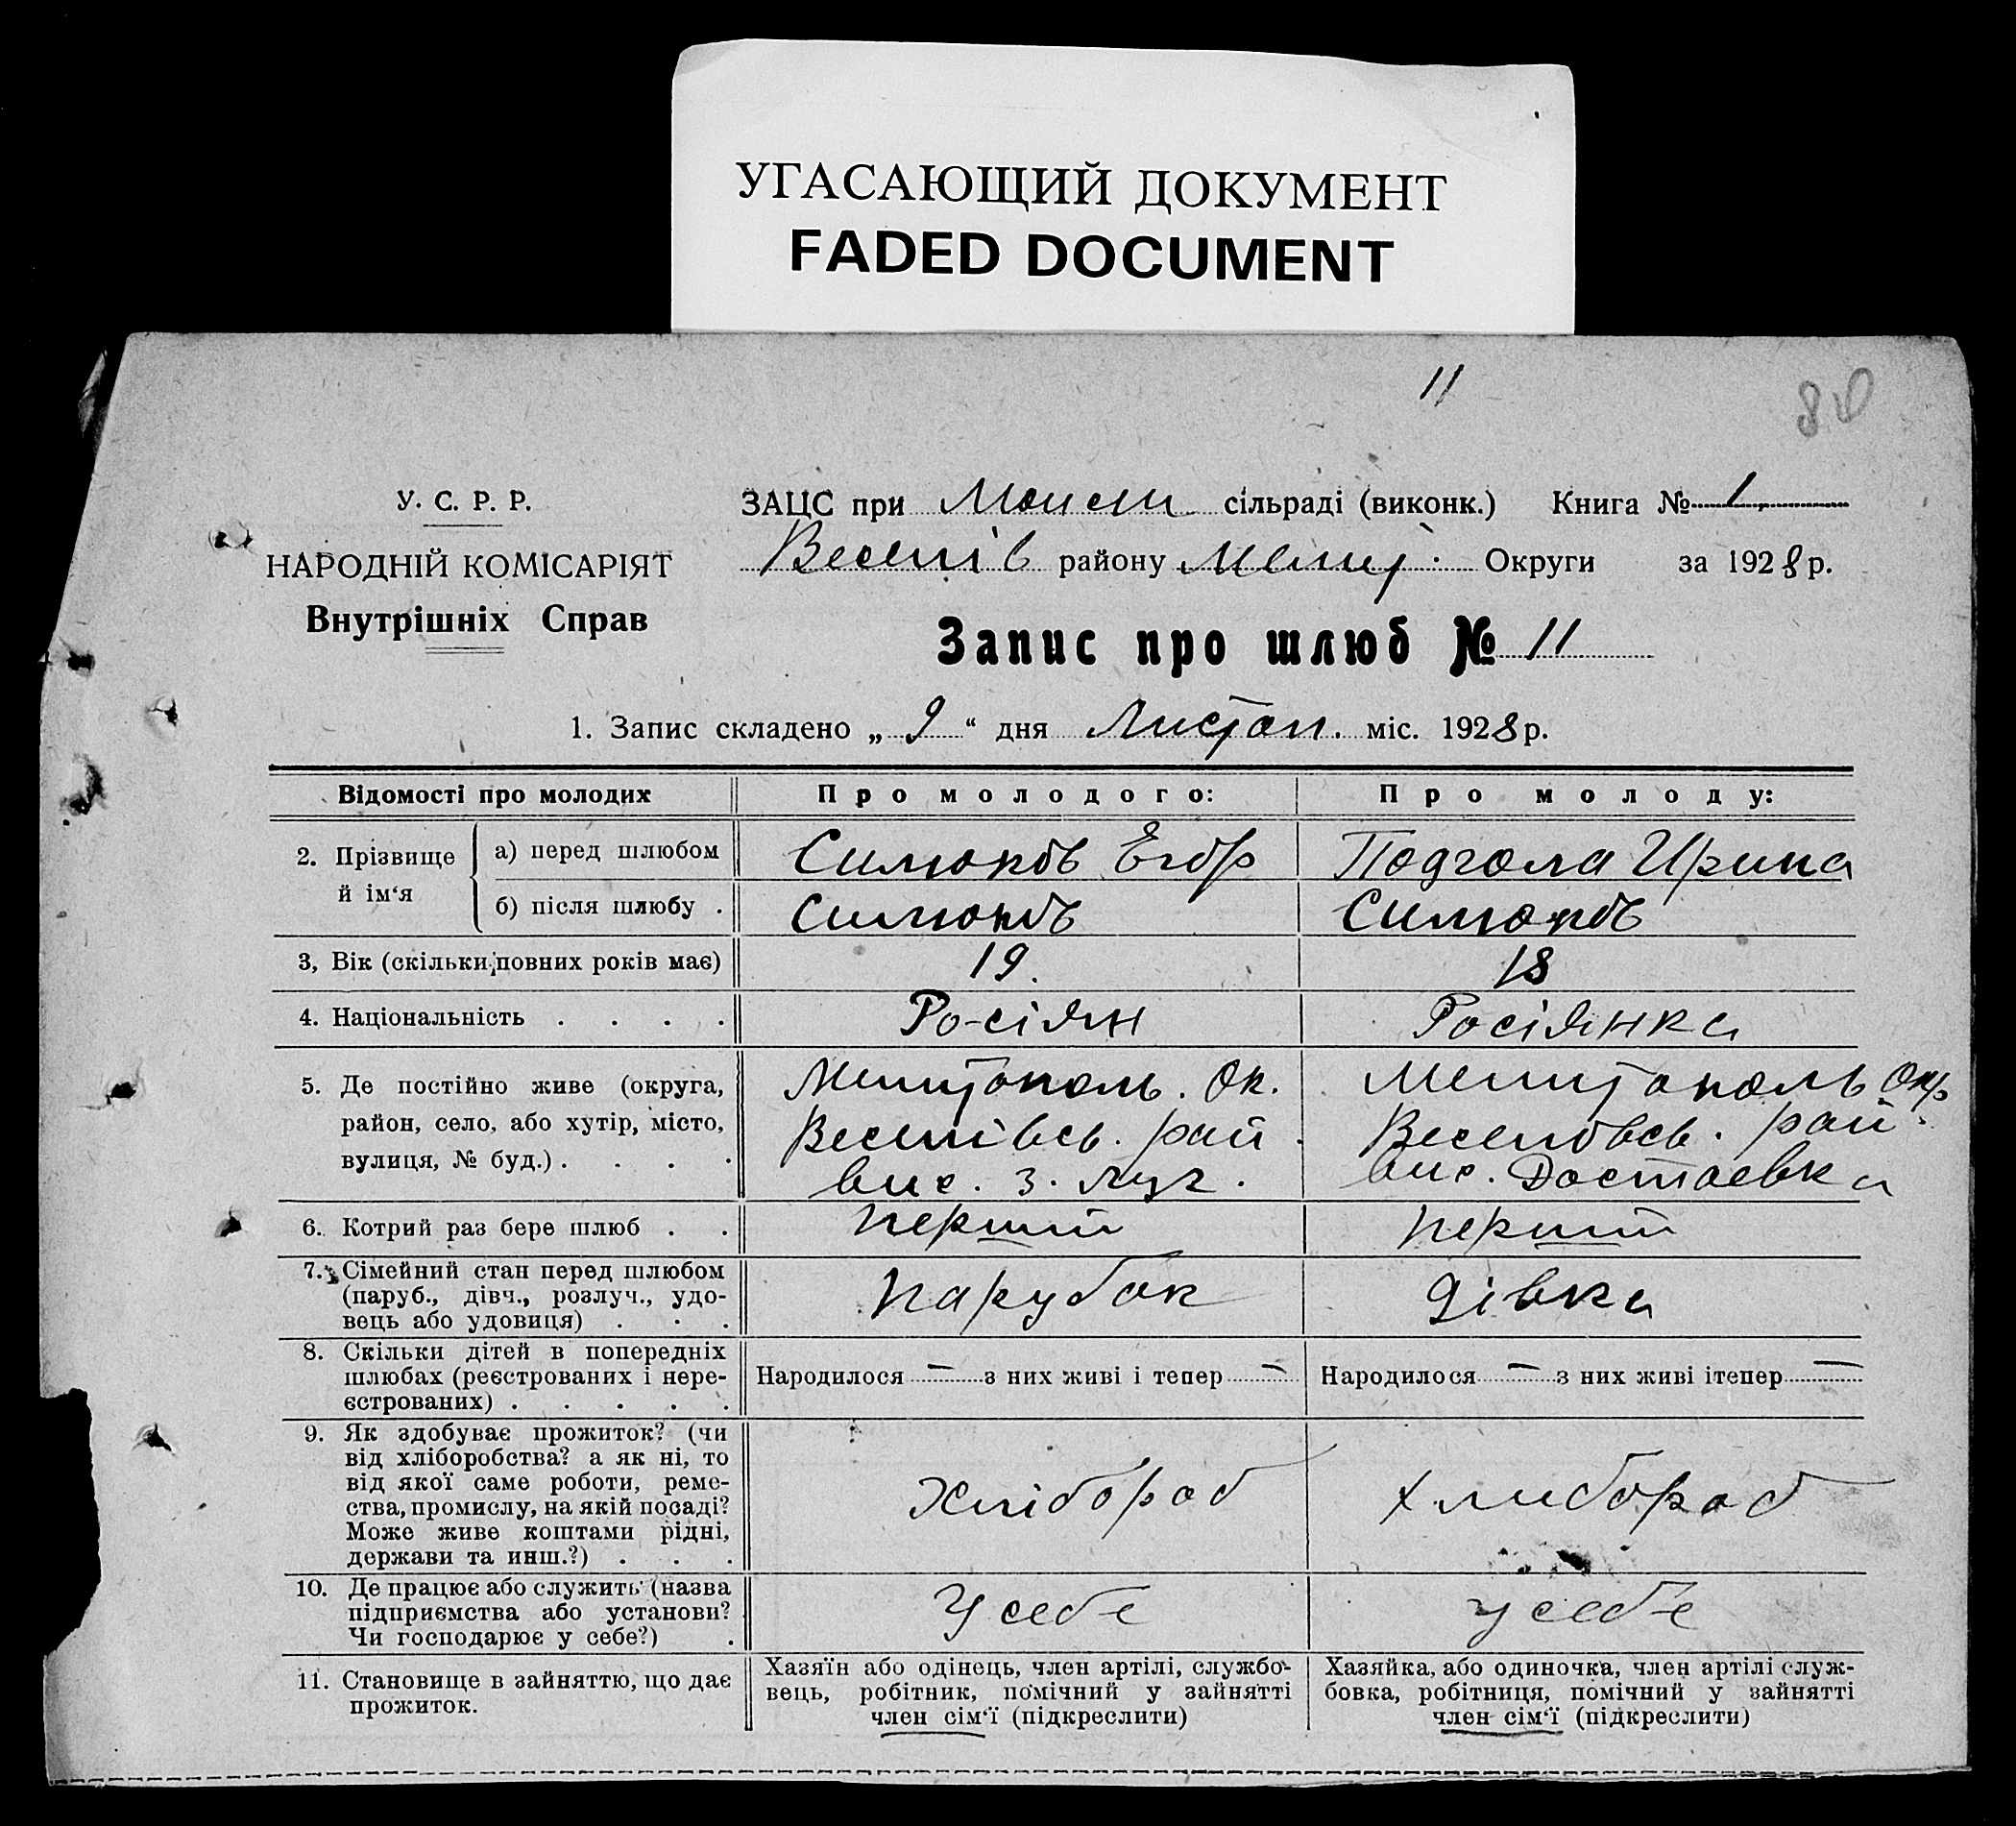 УГАСАЮЩИЙ ДОКУМЕНТ
FADED DOCUMENT
11
80
У. С. Р. Р.
НАРОДНІЙ КОМІСАРІЯТ
Внутрішніх Справ
ЗАЦС при сільраді (виконк.) Книга № 1
Веселів району Меліт. Округи за 1928 р.
Запис про шлюб № 11
1. Запис складено „ 9 “ дня Листоп. міс. 1928 р.
Відомості про молодих
Про молодого:
Про молоду:
2. Прізвище й ім‘я
а) перед шлюбом
Силюков Егор
Подгола Ирина
б) після шлюбу .
Силюков
Силюков
3, Вік (скільки повних років має)
19.
18
4. Національність . . . .
Ро-сіян
Росіянка
5. Де постійно живе (округа,
район, село, або хутір, місто,
вулиця, № буд.) . . . .
Мелитополь. Ок.
Веселівсь. рай.
вис. З. Луг.
Мелитополь Окр
Веселовсь. рай.
вис. Достаевка
6. Котрий раз бере шлюб . .
перший
перший
7. Сімейний стан перед шлюбом
(паруб., дівч., розлуч., удо-
вець або удовиця) . . .
парубок
дівка
8. Скільки дітей в попередніх
шлюбах (реєстрованих і нере-
єстрованих) . . . . .
Народилося — з них живі і тепер —
Народилося — з них живі ітепер —
9. Як здобуває прожиток? (чи
від хліборобства? а як ні, то
від якої саме роботи, реме-
ства, промислу, на якій посаді?
Може живе коштами рідні,
держави та инш.?) . . .
Хлібороб
Хлибороб
10. Де працює або служить (назва
підприємства або установи?
Чи господарює у себе?) .
У себе
у себе
11. Становище в зайняттю, що дає
прожиток.
Хазяїн або одінець, член артілі, службо-
вець, робітник, помічний у зайнятті
член сім‘ї (підкреслити)
Хазяйка, або одиночка, член артілі служ-
бовка, робітниця, помічний у зайнятті
член сім‘ї (підкреслити)